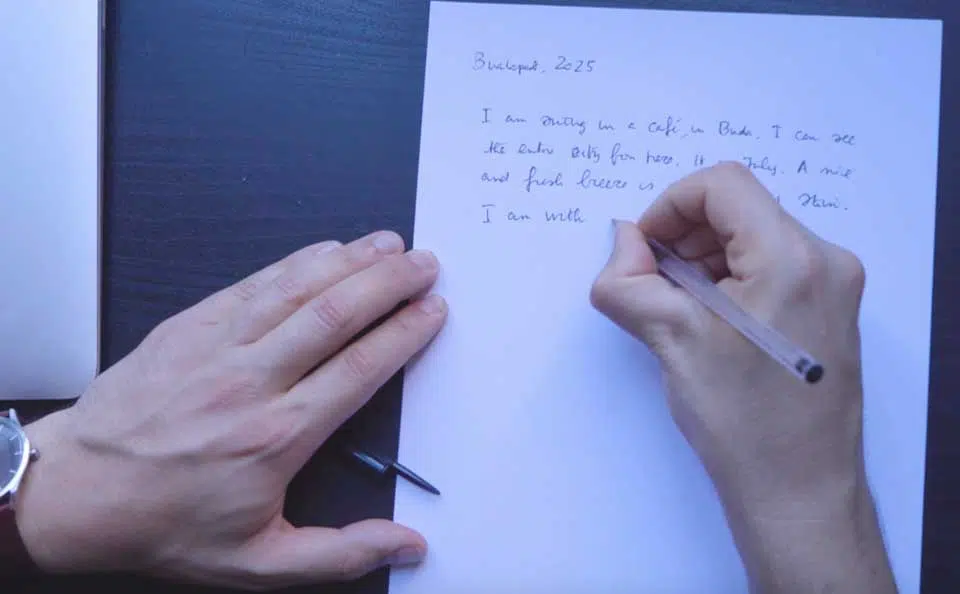 Budapest, 2025
I am sitting in a café, in Buda. I can see
the entire city from here. It is July. A nice
and fresh breeze is
I am with